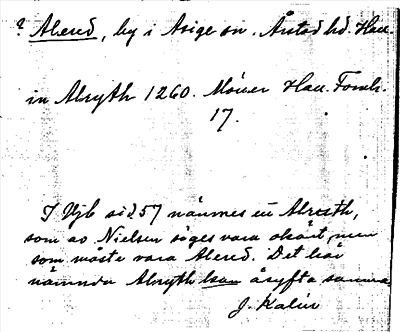 ? Alered, by i Asige sn. Årstad hd. Hall.
in Alryth 1260. Hall. Fornh.
17.
I Vjb sid 57 nämnes en Alrusth,
som av Nielsen säges vara okänt, men
som måste vara Alered. Det här
nämnda Alryth kan åsyfta samma
J. Kalén